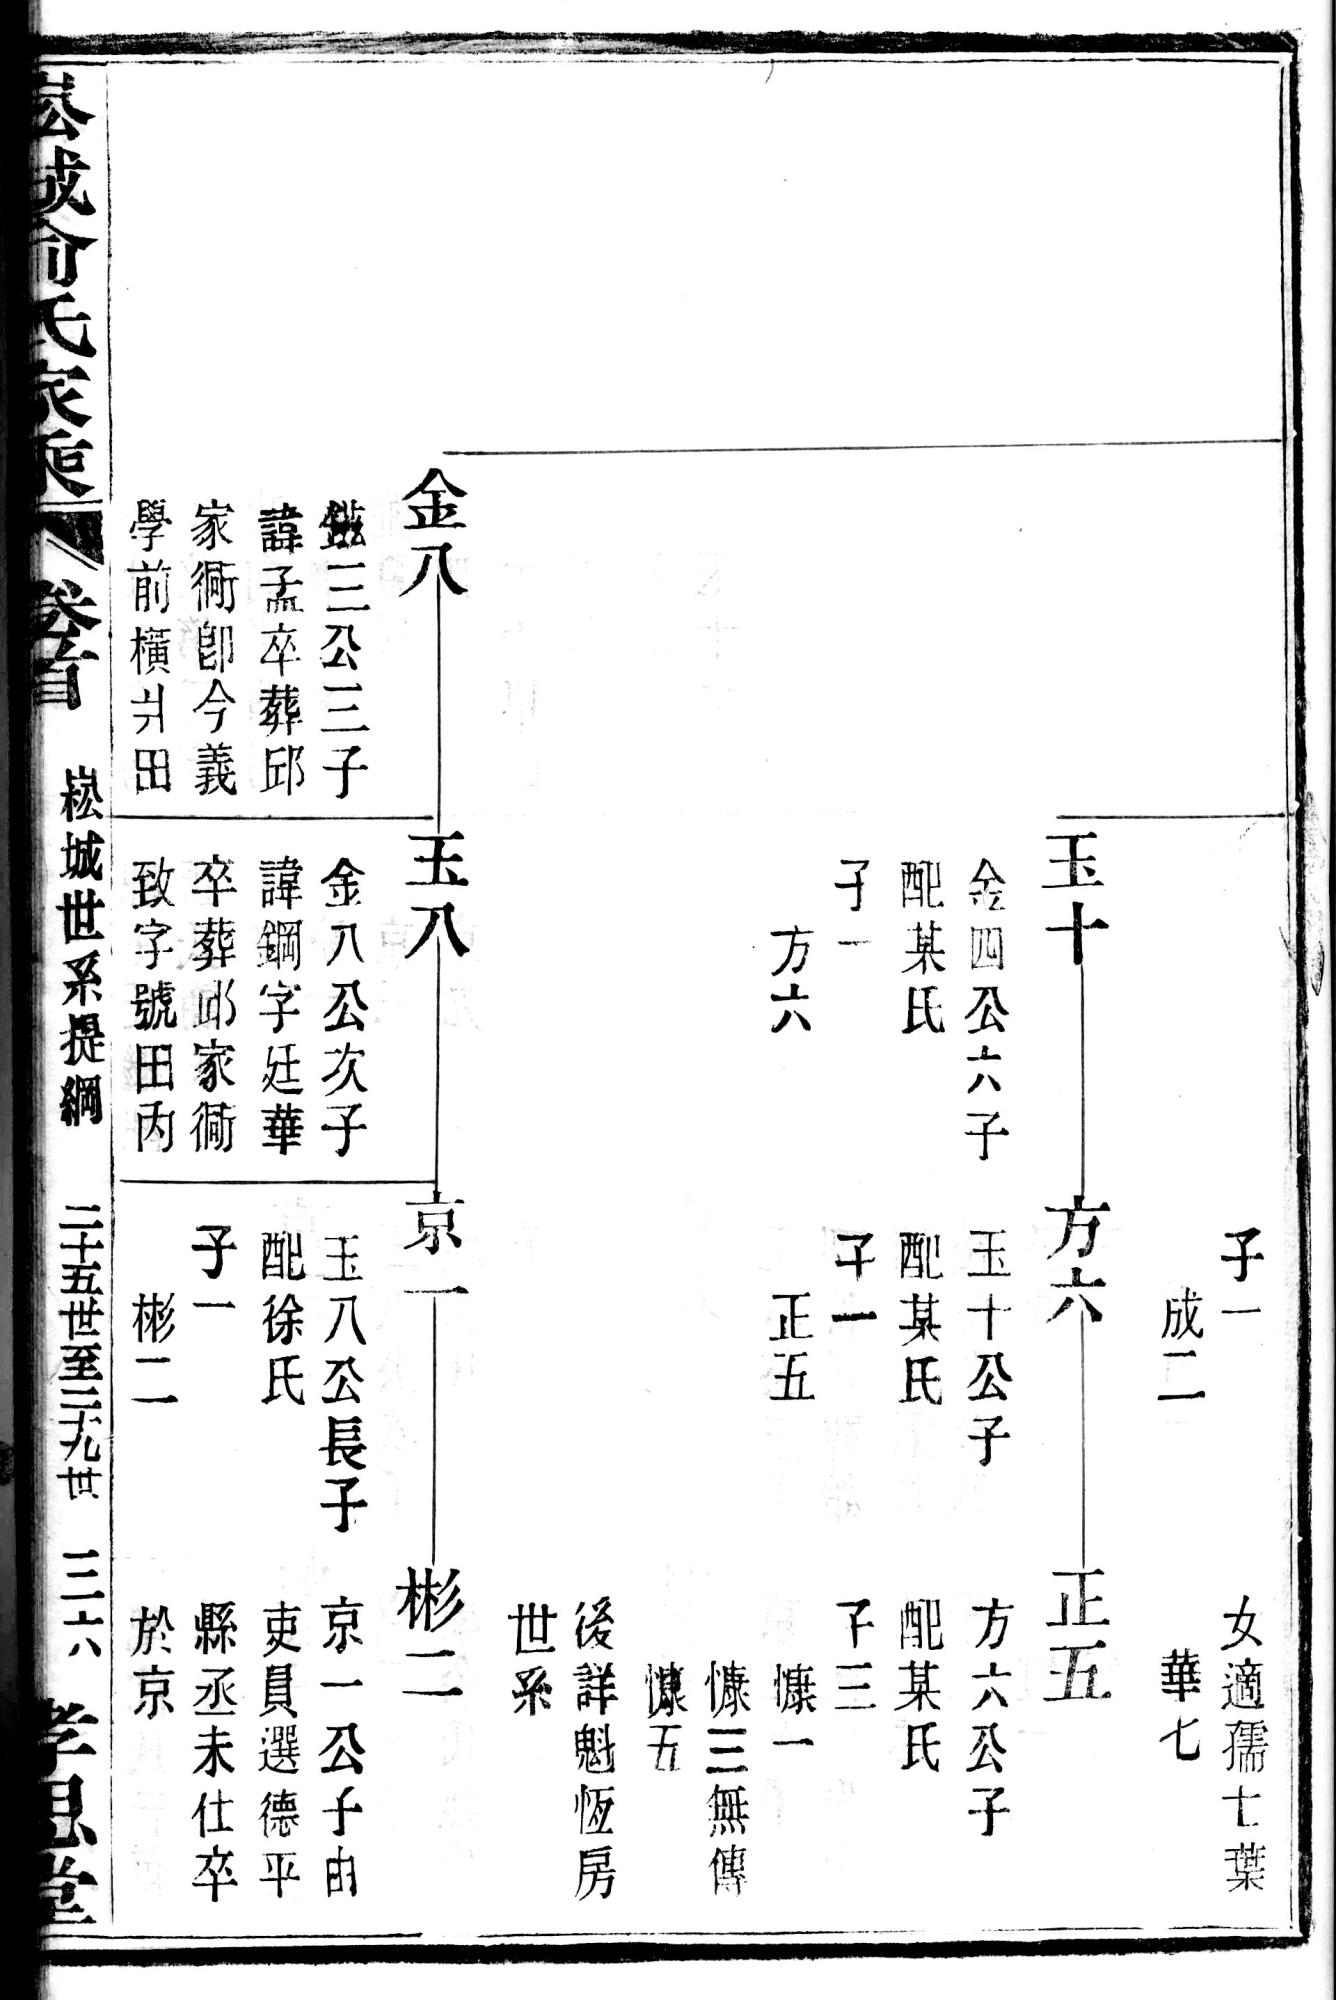 子一
成二
女適孺七葉
華七
玉十
金四公六子
配某氏
子一
方六
方六
玉十公子
配某氏
子一
正五
正五
方六公子
配某氏
子三
慷一
慷三無傳
慷五
後詳魁恆房
世系
金八
三公三子
諱孟卒葬邱
家衕卽今義
學前橫爿田
玉八
金八公次子
諱鋼字廷華
卒葬邱家衕
致字號田內
京一
玉八公長子
配徐氏
子一
彬二
彬二
京一公子由
吏員選德平
縣丞未仕卒
於京
崧城俞氏家乘
卷首
崧城世系提綱
二十五世至二十九世
三六
孝思堂